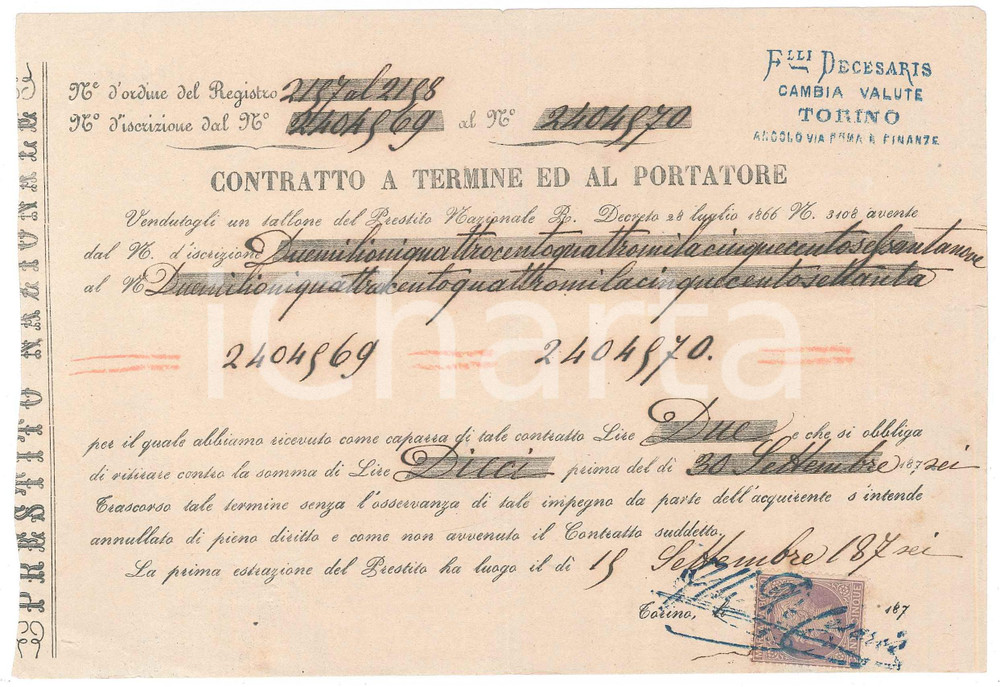 PRESTITO NAZIONALE
F.LLI DECESARIS
CAMBIA VALUTE
TORINO
ANGOLO VIA ROMA E FINANZE
N.º d'ordine del Registro 2197 al 2198
N.º d'iscrizione dal N.º 2404569 al N.º 2404570
CONTRATTO A TERMINE ED AL PORTATORE
Vendutogli un tallone del Prestito Nazionale R. Decreto 28 luglio 1866 N. 3108 avente
dal N. d'iscrizione Duemilioniquattrocentoquattromilacinquecentosessantanove
al N.º Duemilioniquattrocentoquattromilacinquecentosettanta
iCharta
2404569 2404570.
per il quale abbiamo ricevuto come caparra di tale contratto Lire Due e che si obbliga
di ritirare contro la somma di Lire Dieci prima del dì 30 Settembre 187 sei
Trascorso tale termine senza l'osservanza di tale impegno da parte dell'acquirente s'intende
annullato di pieno diritto e come non avvenuto il Contratto suddetto.
La prima estrazione del Prestito ha luogo il dì 15 Settembre 187 sei
Torino, 187